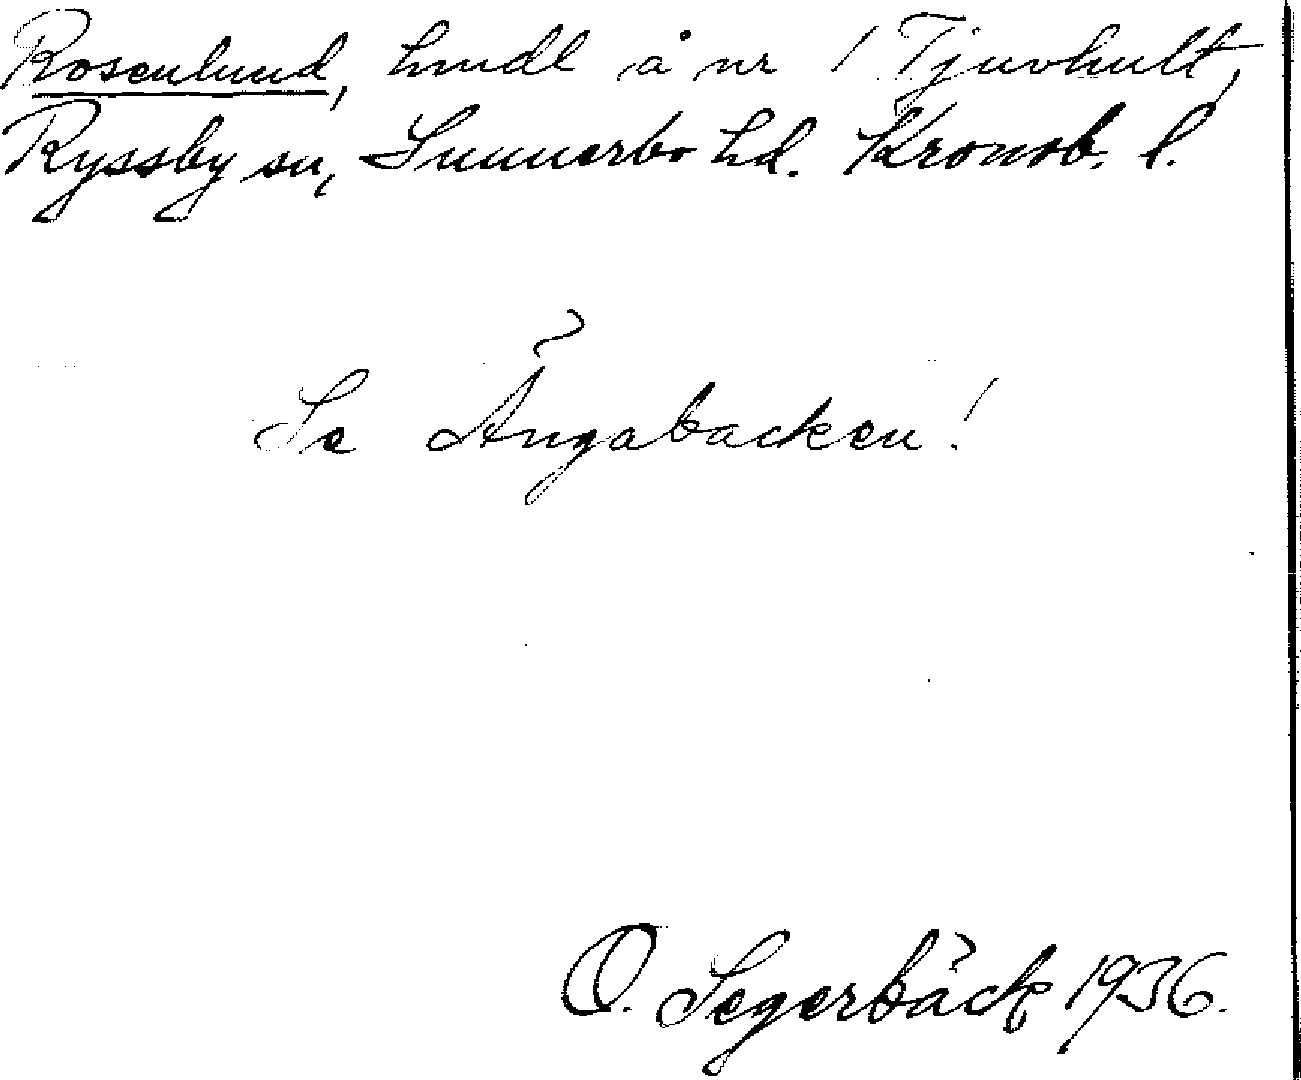 Rosenlund, hmdl å nr 1 Tjuvhult,
Ryssby sn, Sunnerbo hd. Kronob. l.
Se Ängabacken!
O. Segerbäck 1936.